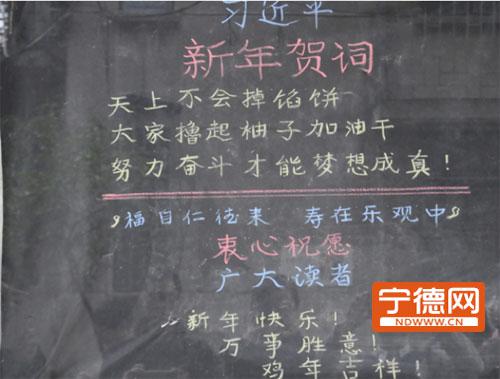 习近平
新年贺词
天上不会掉馅饼
大家撸起柚子加油干
努力奋斗才能梦想成真!
福自仁德来 寿在乐观中
衷心祝愿
广大读者
新年快乐!
万事胜意!
鸡年吉祥!
宁德网
NDWWW.CN